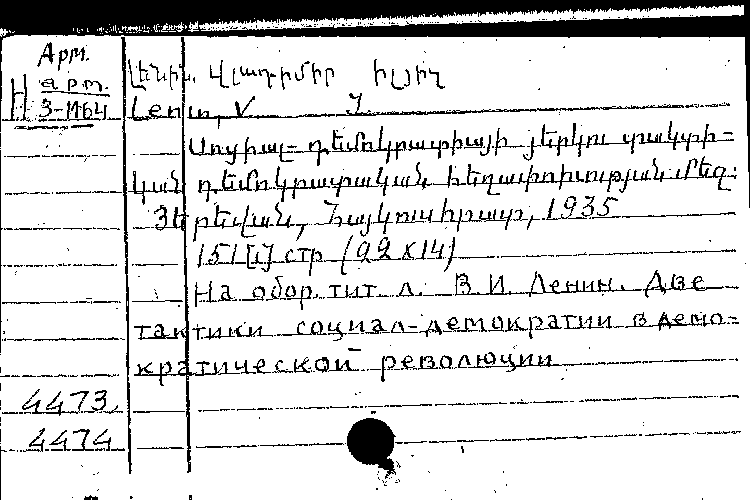 Арм.
Н арм.
3-1164
Լենին, Վլադիմիր Իլյիչ
Lenin, V. I.
Սոցիալ-դեմոկրատիայի յերկու տակտի-
կան դեմոկրատական հեղափոխության մեջ.
Յերեվան, Հայկուսհրատ, 1935
151 [1] стр (22 x 14)
На обор. тит. л. В. И. Ленин. Две
тактики социал-демократии в демо-
кратической революции
4473,
4474